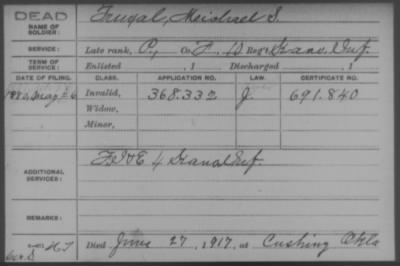 DEAD
NAME OF SOLDIER: Frugal, Meishael S.
SERVICE: Late rank, P, Co. F, 10 Reg't Kans. Inf.
TERM OF SERVICE: Enlisted , 1 Discharged , 1
DATE OF FILING. CLASS. APPLICATION NO. LAW. CERTIFICATE NO.
Invalid, 368.332 J. 691.840
Widow,
Minor,
ADDITIONAL SERVICES: F, I & E 4 Kans Inf.
REMARKS:
Died June 27, 1917, at Cushing Okla